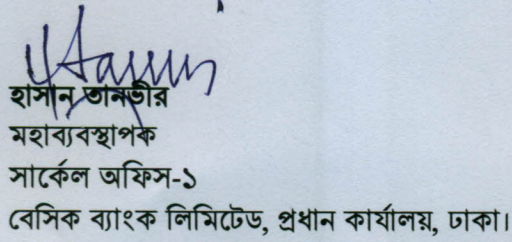 হাসান তানভীর
মহাব্যবস্থাপক
সার্কেল অফিস-১
বেসিক ব্যাংক লিমিটেড, প্রধান কার্যালয়, ঢাকা।